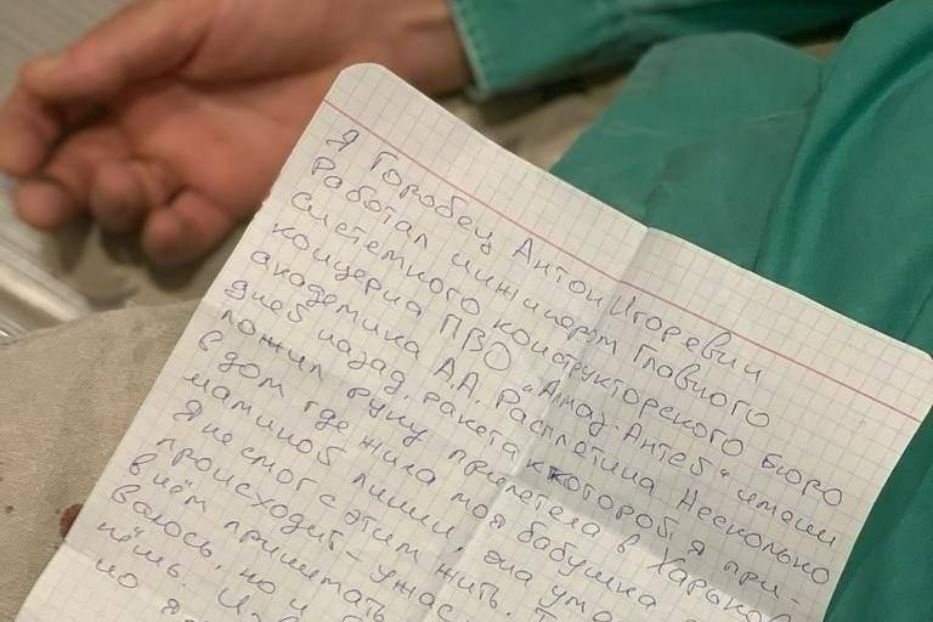 Я Горобец Антон Игоревич
Работал инжинером Главного
системного конструкторского бюро
концерна ПВО "Алмаз-Антей" имени
академика А.А. Расплетина. Несколько
дней назад, ракета к которой я при-
ложил руку прилетела в Харьков
в дом где жила моя бабушка
маминой линии, она
Я не смог с этим жить.
происходит - ужас
в нём принимать
валось, но и
нёшь.
но я